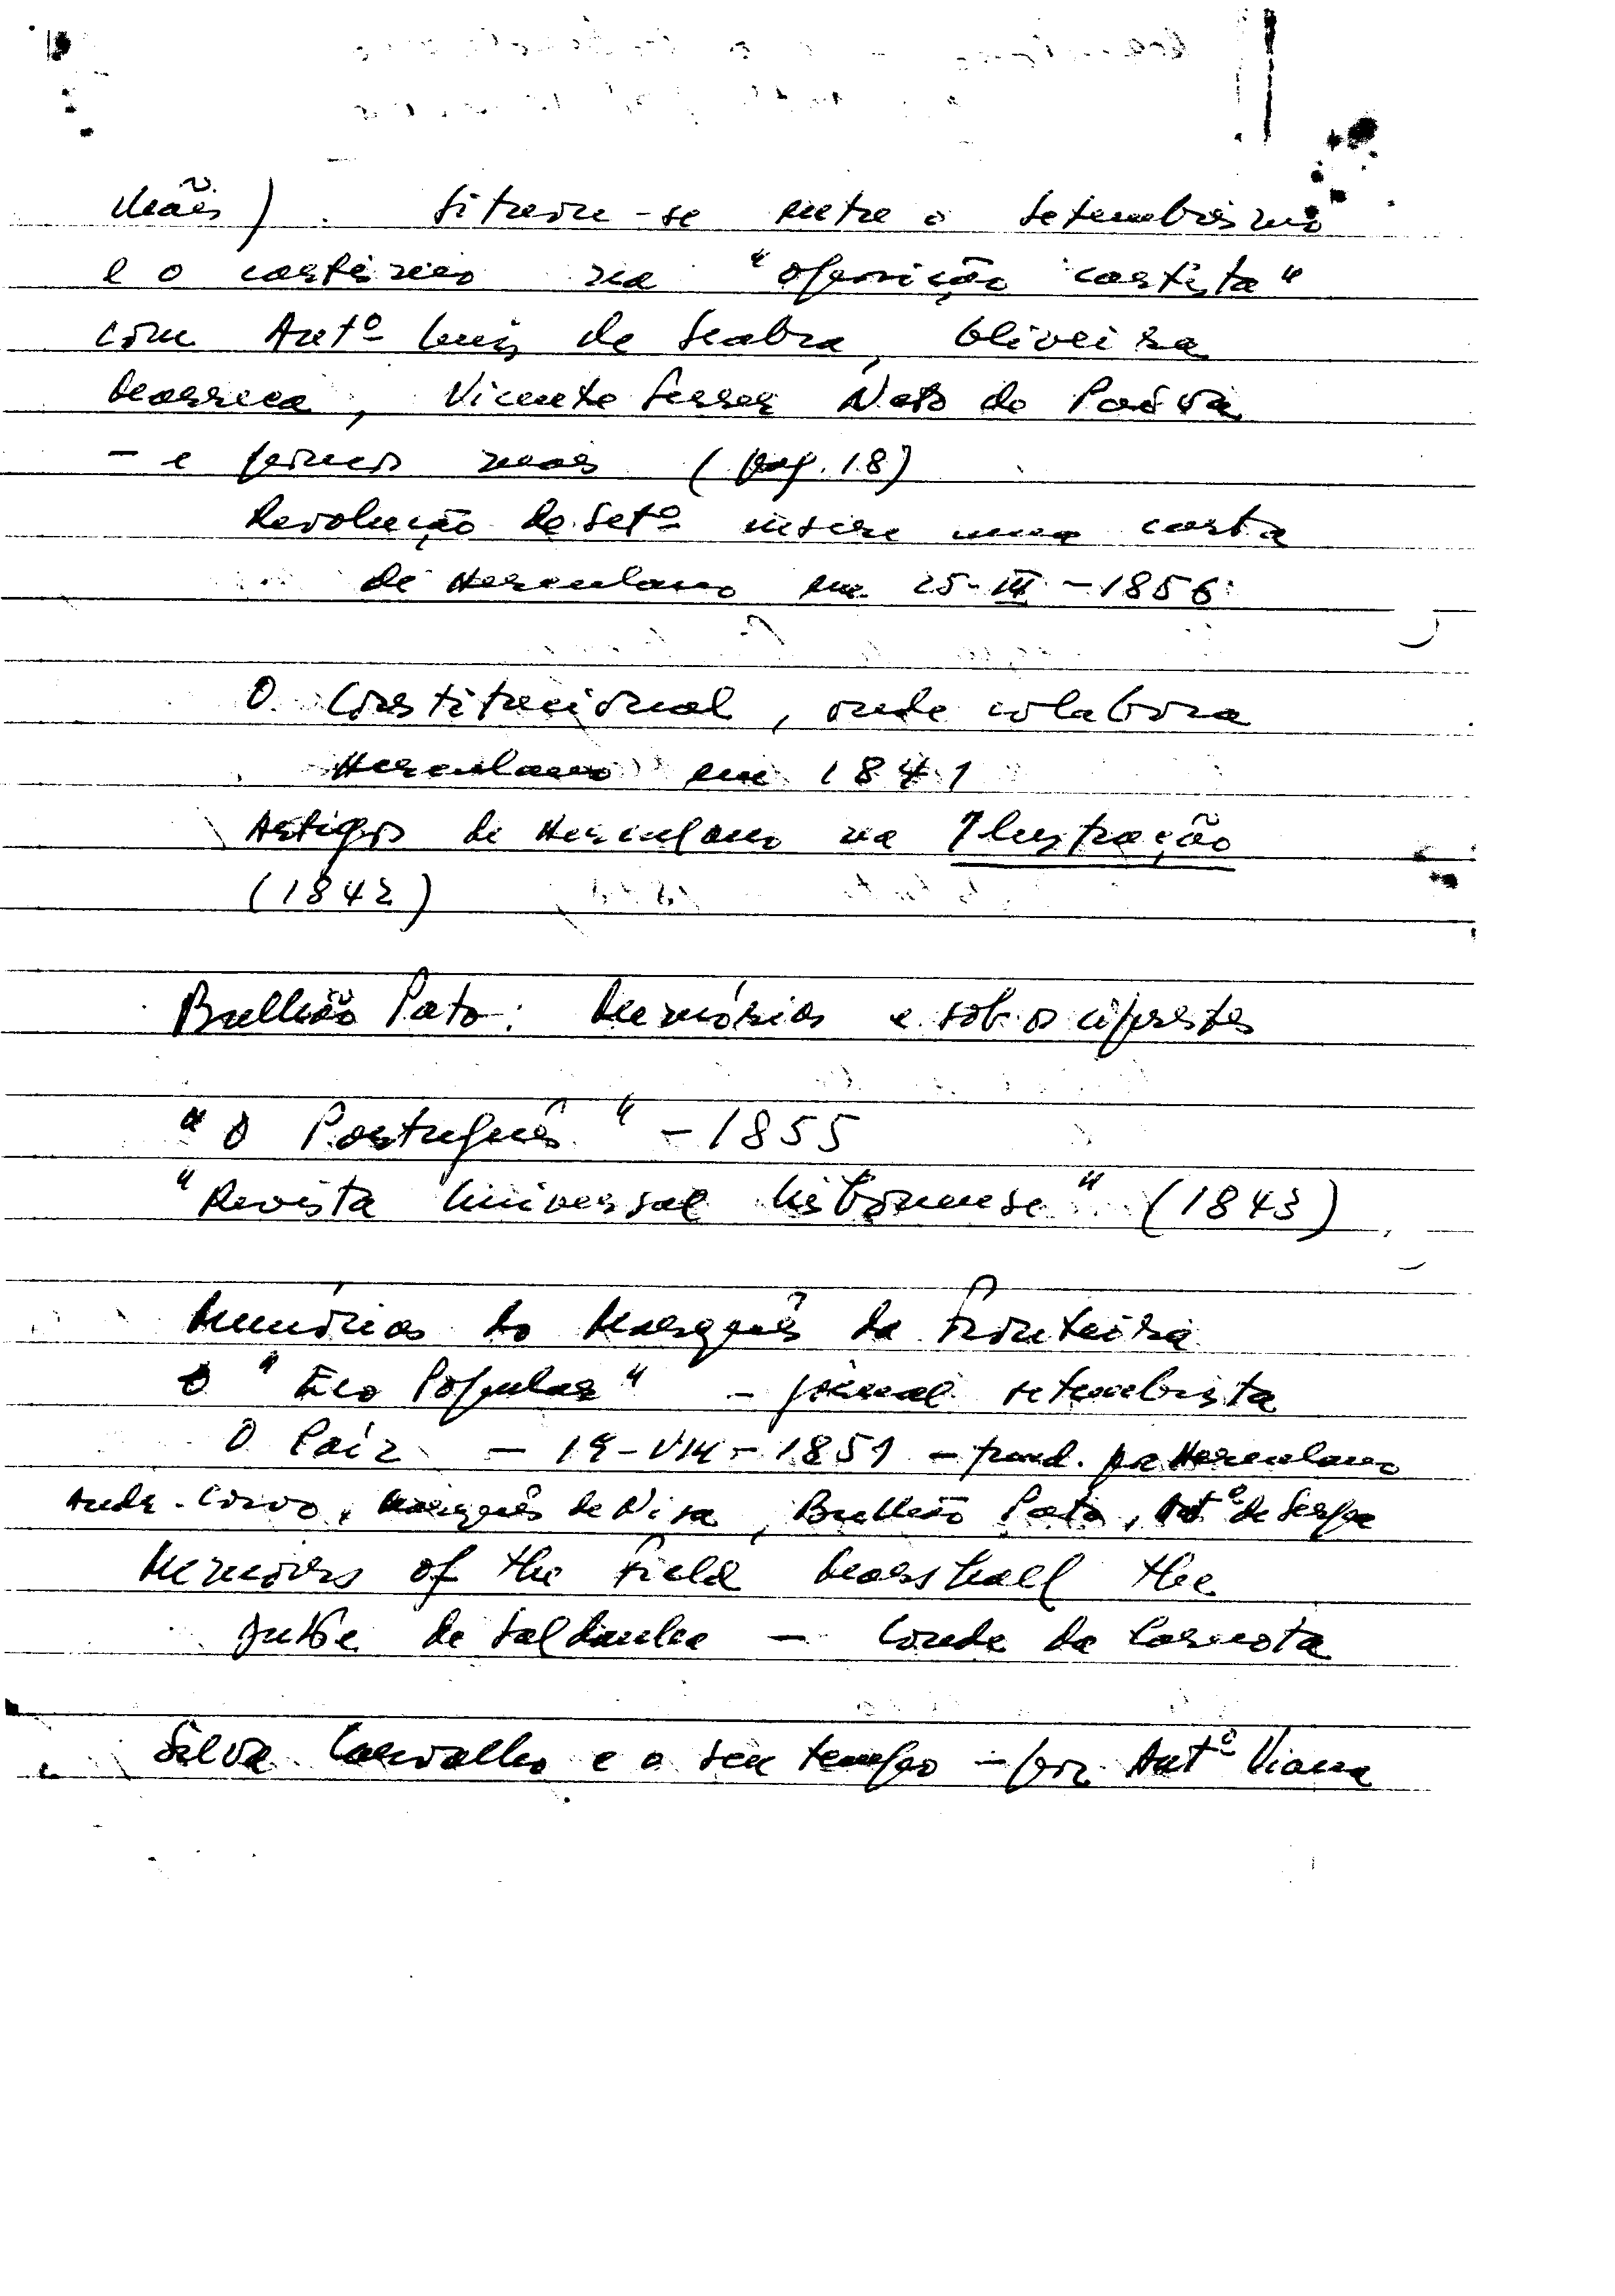 Mães). Situou-se entre o setembrismo
e o cartismo na "oposição cartista"
com Antº Luís de Seabra, Oliveira
Marreca, Vicente Ferrer Neto de Paiva
- e poucos mais (pag. 18)
Revolução de Setº insere uma carta
de Herculano em 25-III-1856:
O Constitucional, onde colabora
Herculano em 1841
Artigos de Herculano na Ilustração
(1842)
Bulhão Pato: Memórias e sob os ciprestes
"O Português" - 1855
"Revista Universal Lisbonense" (1843)
Memórias do Marquês da Fronteira
O "Eco Popular" - jornal setembrista
O Paiz - 19-VIII-1851 - fund. por Herculano
Andr. Corvo, Marquês de Nisa, Bulhão Pato, Antº de Serpa
Memoirs of the Field Marshall the
Duke de Saldanha - Conde da Carnota
Silva Carvalho e o seu tempo - por Antº Viana